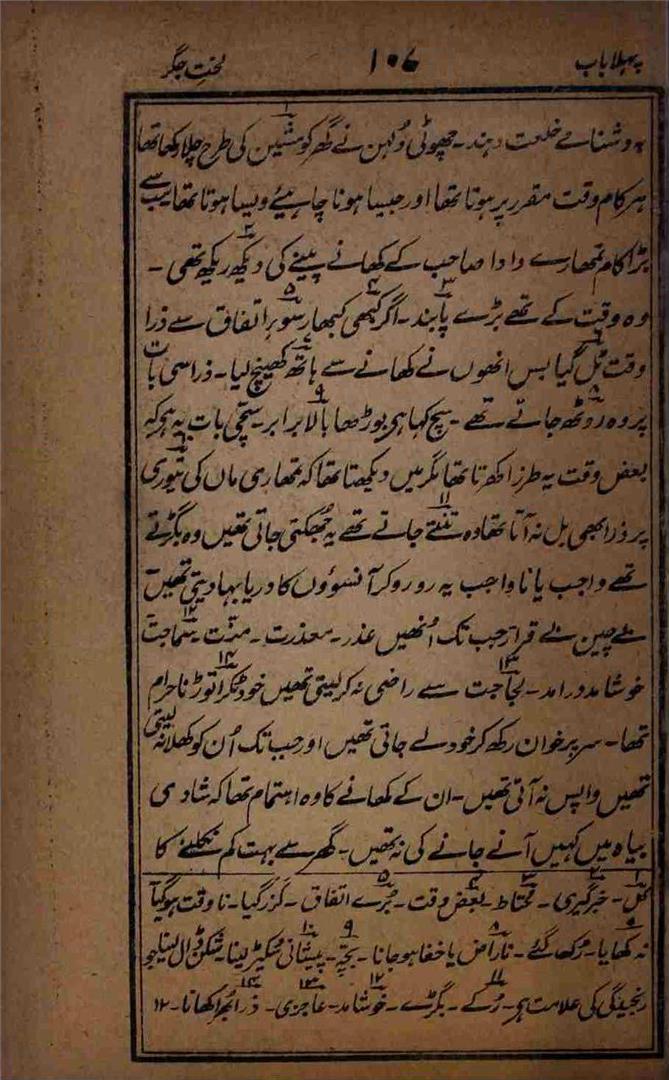 پہلا باب ۱۰۷ لختِ جگر
بہ دشنامے خلعت دہند۔ چھوٹی دُلہن نے گھر کو مشین کی طرح چلا رکھا تھا
ہر کام وقت مقرر پر ہوتا تھا اور جیسا ہونا چاہیئے ویسا ہوتا تھا سب سے
بڑا کام تمھارے دادا صاحب کے کھانے پینے کی دیکھ ریکھ تھی۔
وہ وقت کے تھے بڑے پابند۔ اگر کبھی کبھار سوءِ اتفاق سے ذرا
وقت ٹل گیا بس انھوں نے کھانے سے ہاتھ کھینچ لیا۔ ذرا سی بات
پر وہ روٹھ جاتے تھے۔ سچ کہا ہی بوڑھا بالا برابر سچی بات یہ ہی کہ
بعض وقت یہ طرز اکھرتا تھا مگر میں دیکھتا تھا کہ تمھاری ماں کی تیوری
پر ذرا بھی بل نہ آتا تھا وہ تنتے جاتے تھے یہ جُھکتی جاتی تھیں وہ بگڑتے
تھے واجب یا ناواجب یہ رو رو کر آنسوؤں کا دریا بہا دیتی تھیں
بے چین بے قرار جب تک اُنھیں عذر۔ معذرت۔ منّت۔ سماجت
خوشامد درامد۔ لجاجت سے راضی نہ کر لیتی تھیں خود ٹکڑا توڑنا حرام
تھا۔ سر پر خوان رکھ کر خود لے جاتی تھیں اور جب تک اُن کو کھلا نہ لیتی
تھیں واپس نہ آتی تھیں۔ ان کے کھانے کا وہ اہتمام تھا کہ شادی
بیاہ میں کہیں آنے جانے کی نہ تھیں۔ گھر سے بہت کم نکلنے کا
۱ کَل۔ ۲ خبرگیری۔ ۳ محتاط۔ ۴ بعض وقت۔ ۵ بُرے اتفاق۔ ۶ گزر گیا۔ ناوقت ہو گیا
۷ نہ کھایا۔ رُک گئے۔ ۸ ناراض یا خفا ہو جانا۔ ۹ بچّہ۔ ۱۰ پیشانی سکیڑ لینا یہ شکن ڈال لینا جو
رنجیدگی کی علامت ہو۔ ۱۱ رُکے۔ بگڑے۔ ۱۲ خوشامد۔ ۱۳ عاجزی۔ ۱۴ ذرا بھی کھانا۔ ۱۲